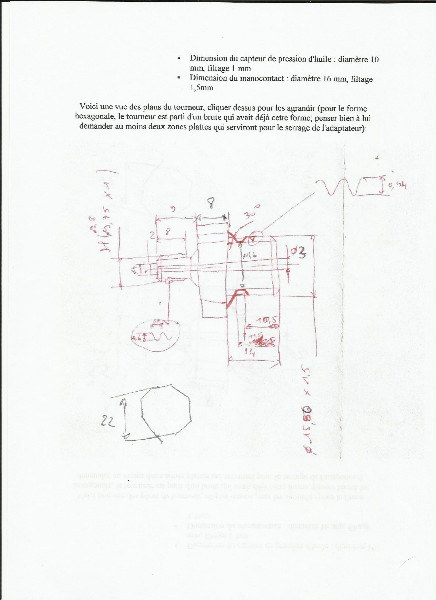 • Dimension du capteur de pression d'huile : diamètre 10
mm, filtage 1 mm
• Dimension du manocontact : diamètre 16 mm, filtage
1,5mm
Voici une vue des plans du tourneur, cliquer dessus pour les agrandir (pour le forme
hexagonale, le tourneur est parti d'un brute qui avait déjà cette forme, penser bien à lui
demander au moins deux zones plattes qui serviront pour le serrage de l'adaptateur):
9
8
2
8
30°
ø3
10,5
14
22